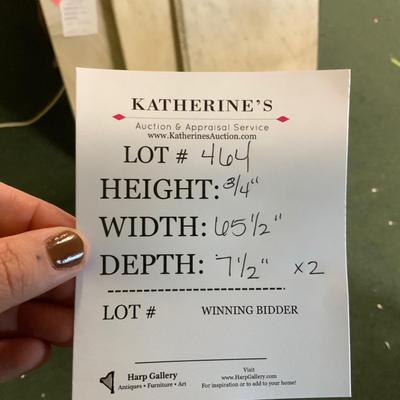 KATHERINE'S
Auction & Appraisal Service
www.KatherinesAuction.com
LOT # 464
HEIGHT: 3/4"
WIDTH: 65 1/2"
DEPTH: 7 1/2" x2
LOT # WINNING BIDDER
Harp Gallery
Antiques • Furniture • Art
Visit
www.HarpGallery.com
For inspiration or to add to your home!